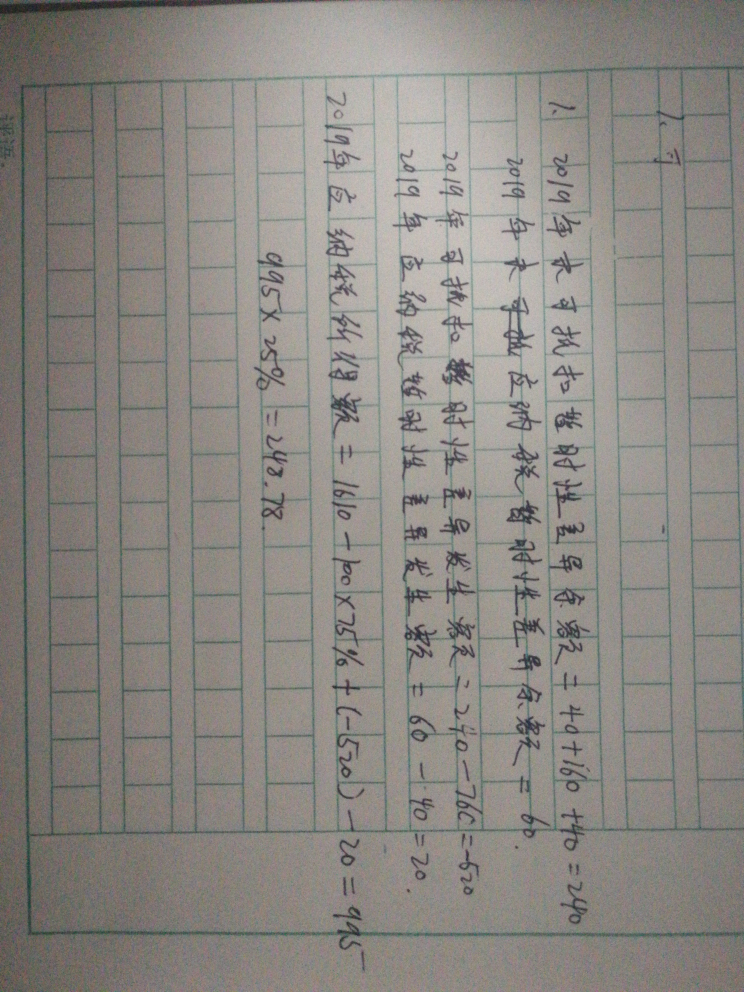 1、可
1、2019年末可抵扣暂时性差异余额=40+160+40=240
2019年末可抵应纳税暂时性差异余额=60.
2019年可抵扣暂时性差异发生额=240-760=-520
2019年应纳税暂时性差异发生额=60-40=20.
2019年应纳税所得额=1610-100×75%+(-520)-20=995
995×25%=248.78.